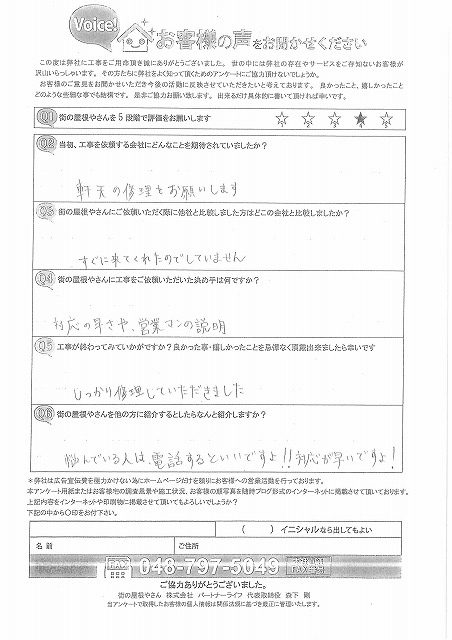 Voice!
お客様の声をお聞かせください
この度は弊社に工事をご用命頂き誠にありがとうございました。世の中には弊社の存在やサービスをご存知ないお客様が
沢山いらっしゃいます。その方たちに弊社をよく知って頂くためのアンケートにご協力頂けないでしょうか。
お客様のご意見をお聞かせいただき今後の活動に反映させていただきたいと考えております。良かったこと、嬉しかったこと
どのような些細な事でも結構です。是非ご協力お願い致します。出来るだけ具体的に書いて頂ければ幸いです。
Q1 街の屋根やさんを5段階で評価をお願いします ☆1 ☆2 ☆3 ★4 ☆5
Q2 当初、工事を依頼する会社にどんなことを期待されていましたか?
軒天の修理をお願いします
Q3 街の屋根やさんにご依頼いただく際に他社と比較しました方はどこの会社と比較しましたか?
すぐに来てくれたのでしていません
Q4 街の屋根やさんに工事をご依頼いただいた決め手は何ですか?
対応の早さや、営業マンの説明
Q5 工事が終わってみていかがですか?良かった事・嬉しかったことを忌憚なく頂戴出来ましたら幸いです
しっかり修理していただきました
Q6 街の屋根やさんを他の方に紹介するとしたらなんと紹介しますか?
悩んでいる人は、電話するといいですよ!!対応が早いですよ!
*弊社は広告宣伝費を極力かけない為にホームページだけを頼りにお客様への営業活動を行っております。
本アンケート用紙またはお客様宅の調査風景や施工状況、お客様の顔写真を随時ブログ形式のインターネットに掲載させて頂いております。
上記内容をインターネットや印刷物に掲載させて頂いてもよろしいでしょうか?
下記の中から〇印をお付下さい。
( ) イニシャルなら出してもよい
名 前 ご住所
048-797-5049
ご協力ありがとうございました。
街の屋根やさん 株式会社 パートナーライフ 代表取締役 森下 剛
当アンケートで取得したお客様の個人情報は関係法規に基づき厳正に管理いたします。